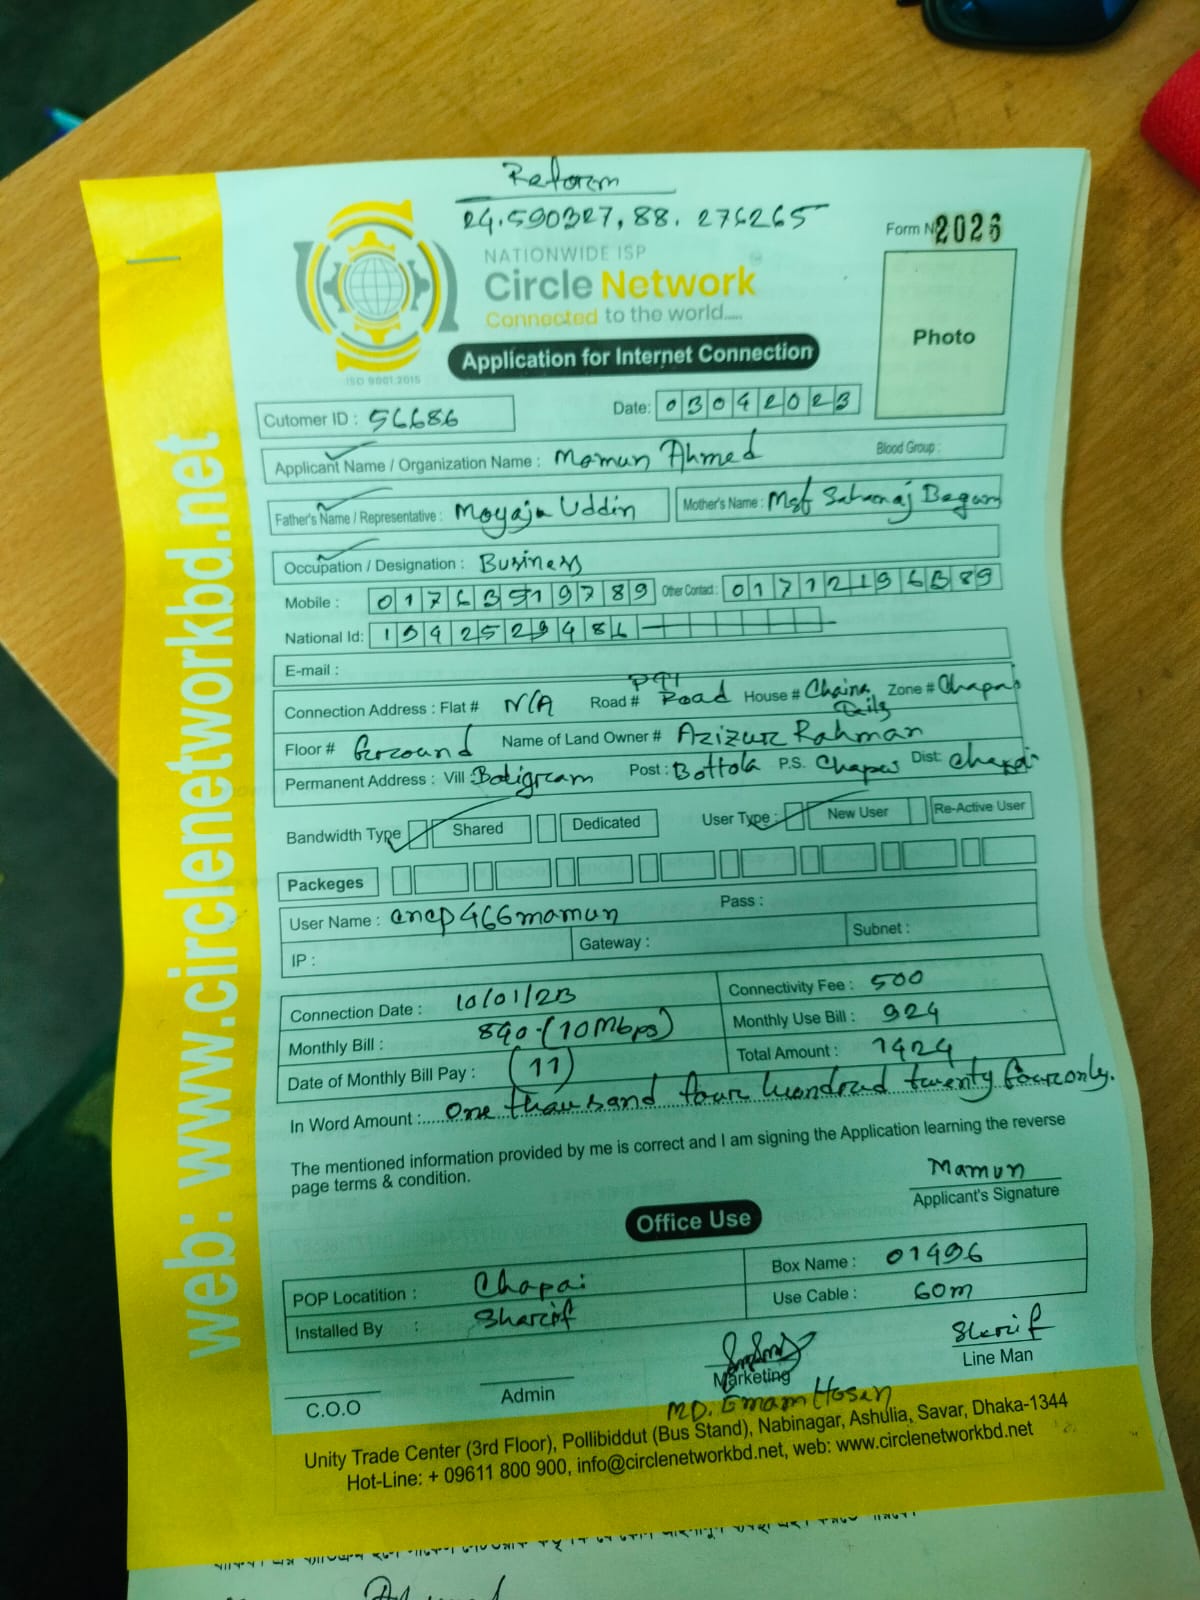 Reform
24.590327, 88.276265
Form N 2026
NATIONWIDE ISP
Circle Network
Connected to the world.....
ISO 9001:2015
Application for Internet Connection
Photo
Cutomer ID : 56686
Date: 03042023
Applicant Name / Organization Name : Momun Ahmed
Blood Group :
Father's Name / Representative : Moyaja Uddin
Mother's Name : Mst Sahanaj Begum
Occupation / Designation : Business
Mobile : 01763519789
Other Contact : 01712196689
National Id: 1942529486
E-mail :
Connection Address : Flat # N/A Road # Road House # Zone # Chapai
Floor # Ground Name of Land Owner # Azizur Rahman
Permanent Address : Vill Batigram Post : Bottola P.S. Chapai Dist: Chapai
Bandwidth Type Shared Dedicated User Type : New User Re-Active User
Packeges
User Name : cncp466mamun Pass :
IP : Gateway : Subnet :
Connection Date : 10/01/23
Connectivity Fee : 500
Monthly Bill : 840-(10Mbps)
Monthly Use Bill : 924
Date of Monthly Bill Pay : (11)
Total Amount : 1424
In Word Amount :...... One thousand four hundred twenty four only.
The mentioned information provided by me is correct and I am signing the Application learning the reverse
page terms & condition.
Mamun
Applicant's Signature
Office Use
POP Locatition : Chapai
Box Name : 01496
Installed By : Sharif
Use Cable : 60m
Sharif
C.O.O
Admin
Marketing
Line Man
MD. Emam Hosen
Unity Trade Center (3rd Floor), Pollibiddut (Bus Stand), Nabinagar, Ashulia, Savar, Dhaka-1344
Hot-Line: + 09611 800 900, info@circlenetworkbd.net, web: www.circlenetworkbd.net
web: www.circlenetworkbd.net